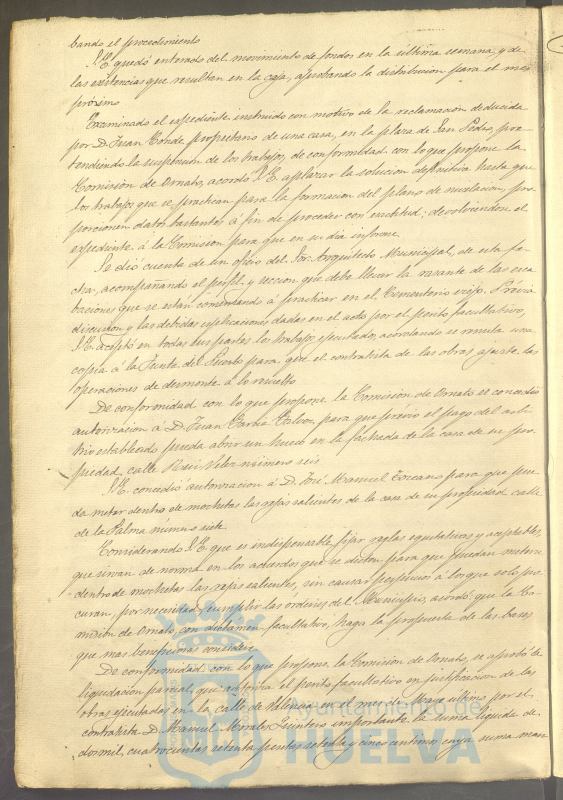 bando el procedimiento
S.E. quedó enterado del movimiento de fondos en la última semana, y de
las existencias que resultan en la caja, aprobando la distribucion para el mes
próximo
Examinado el espediente instruido con motivo de la reclamacion deducida
por D. Juan Conde propietario de una casa, en la plaza de San Pedro, pre-
tendiendo la suspension de los trabajos, de conformidad con lo que propone la
Comision de Ornato, acordó S.E. aplazar la solucion definitiva hasta que
los trabajos que se practican para la formacion del plano de nivelacion, pro-
porcionen datos bastantes á fin de proceder con exactitud; devolviendose el
espediente á la Comision para que en su dia informe
Se dió cuenta de un oficio del Sor. Arquitecto Municipal, de esta fe-
cha, acompañando el perfil y seccion que debe llevar la rasante de las esca
baciones que se están comenzando á practicar en el Cementerio viejo. Prévia
discusion, y las debidas esplicaciones dadas en el acto por el perito facultativo,
S.E. aceptó en todas sus partes los trabajos ejecutados, acordando se remita una
copia á la Junta del Puerto para que el contratista de las obras ajuste las
operaciones de desmonte á lo resuelto
De conformidad con lo que propone la Comision de Ornato se concedió
autorizacion á D. Juan García para que previo el pago del arbi
trio establecido pueda abrir un hueco en la fachada de la casa de su pro-
piedad, calle número seis
S.E. concedió autorizacion á D. José Manuel Toscano para que pue
da meter dentro de mochetas las rejas salientes de la casa de su propiedad calle
de la Palma número siete
Considerando S.E. que es indispensable fijar reglas equitativas y aceptables,
que sirvan de norma en los acuerdos que se dicten para que puedan meterse
dentro de mochetas las rejas salientes, sin causar perjuicios á los que solo pro
curan, por necesidad, cumplir las órdenes del Municipio, acordó: que la Co-
mision de Ornato, con dictamen facultativo, haga la propuesta de las bases
que mas beneficiosas considere
De conformidad con lo que propone la Comision de Ornato, se aprobó la
liquidacion parcial, que informa el perito facultativo en justificacion de las
obras ejecutadas en la calle de Valencia en el mes de Mayo último por el
contratista D. Manuel Morales Quintero importante la suma líquida de
dos mil, cuatrocientas setenta pesetas setenta y cinco centimos cuya suma man
Ayuntamiento de
HUELVA